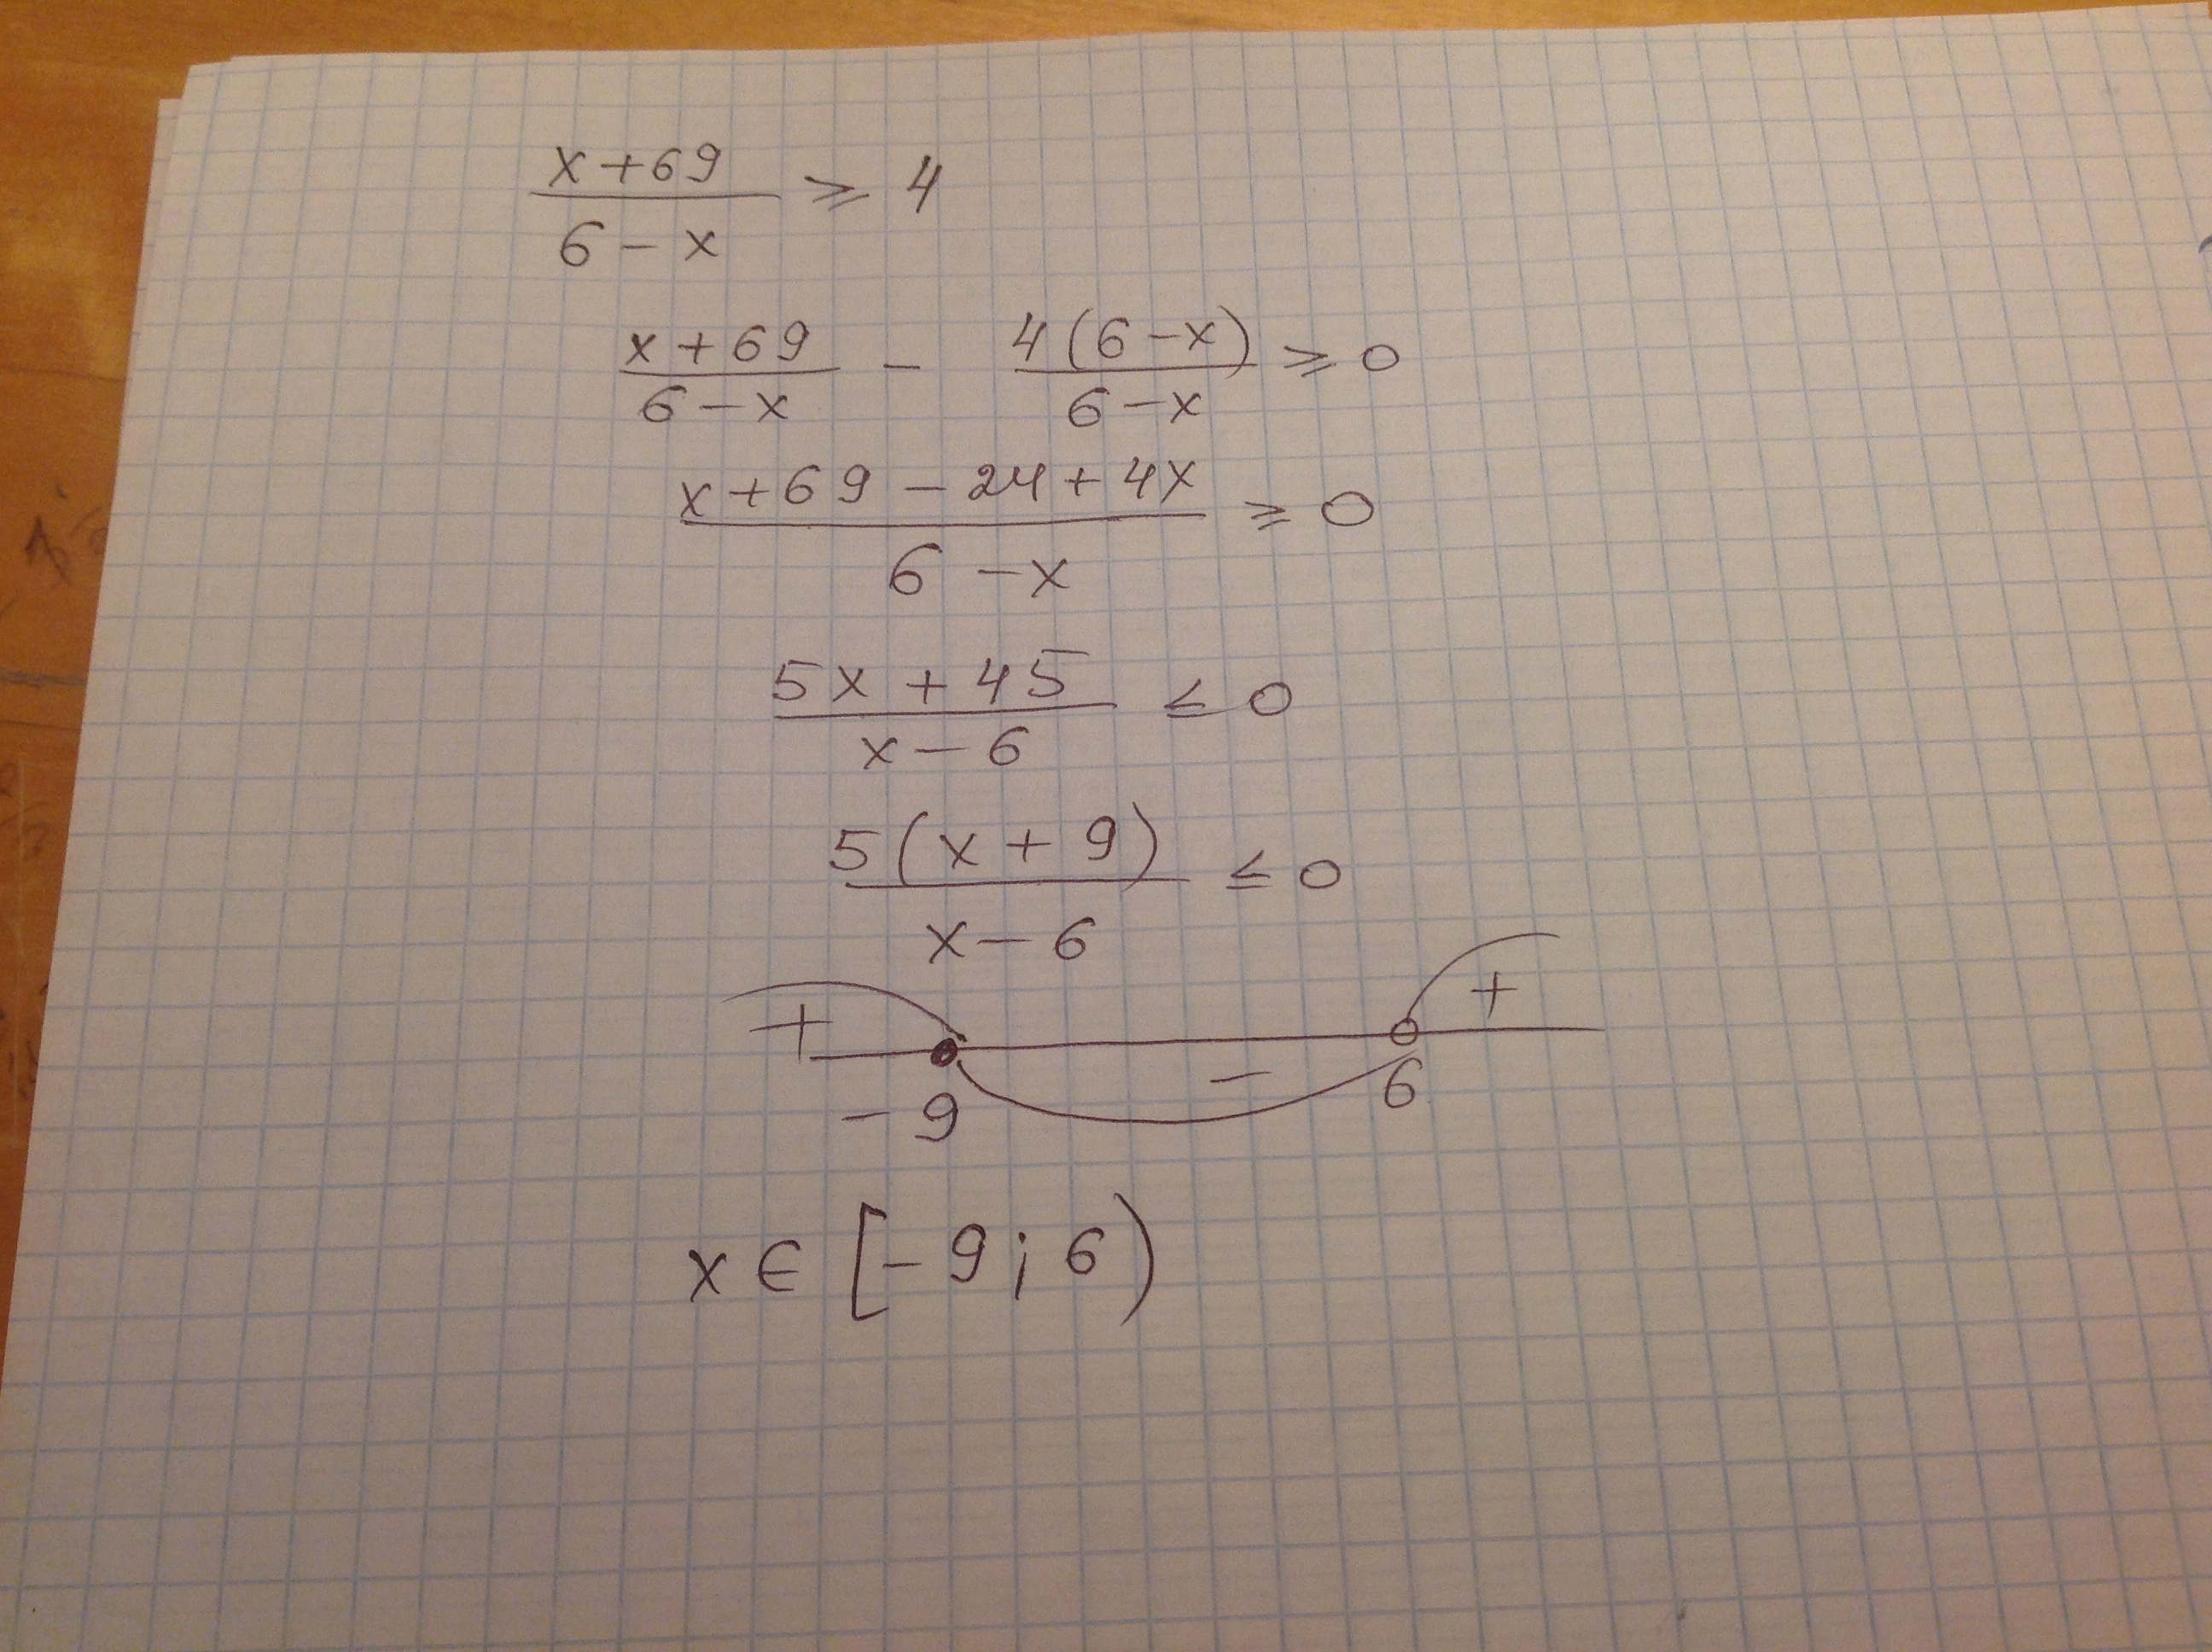 x+69 / 6-x ⩾ 4
x+69 / 6-x - 4(6-x) / 6-x ⩾ 0
x+69-24+4x / 6-x ⩾ 0
5x+45 / x-6 ≤ 0
5(x+9) / x-6 ≤ 0
+ - +
-9 6
x ∈ [-9; 6)